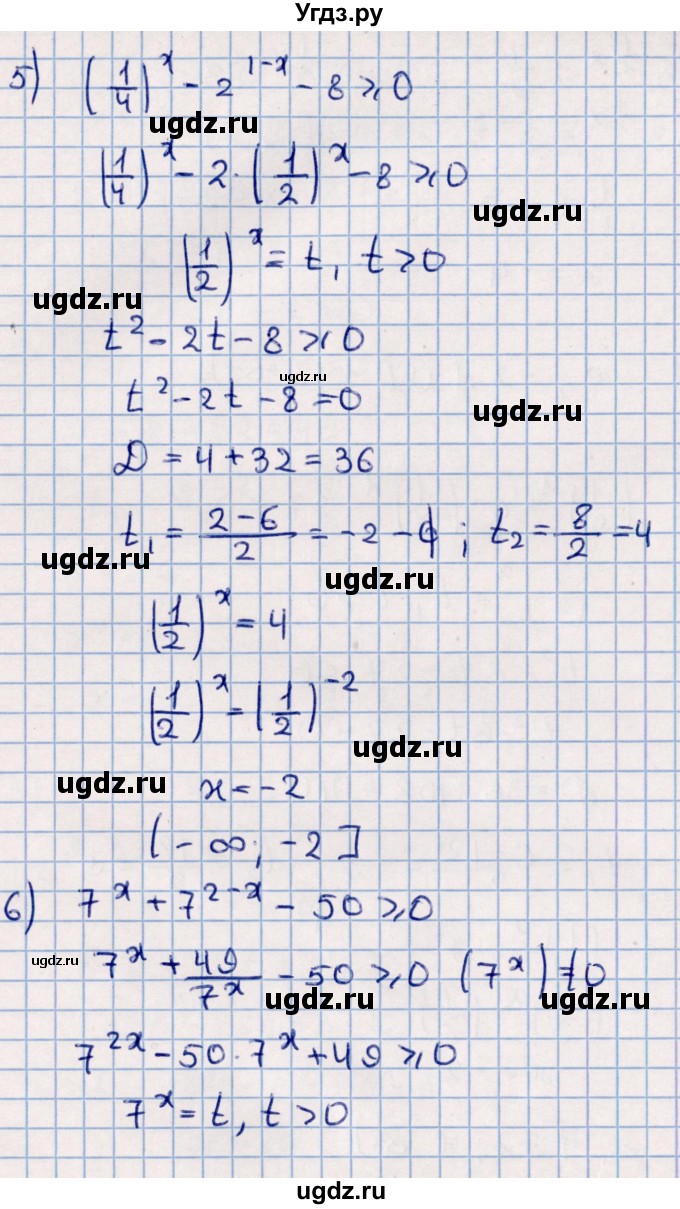 Угдз.ру
5) (1/4)^x - 2^(1-x) - 8 ⩾ 0
ugdz.ru
(1/4)^x - 2·(1/2)^x - 8 ⩾ 0
ugdz.ru
(1/2)^x = t, t > 0
ugdz.ru
t² - 2t - 8 ⩾ 0
ugdz.ru
t² - 2t - 8 = 0
ugdz.ru
D = 4 + 32 = 36
t₁ = (2-6)/2 = -2 - ϕ ; t₂ = 8/2 = 4
ugdz.ru
ugdz.ru
(1/2)^x = 4
(1/2)^x = (1/2)^(-2)
ugdz.ru
ugdz.ru
x = -2
(-∞; -2]
6) 7^x + 7^(2-x) - 50 ⩾ 0
ugdz.ru
7^x + 49/7^x - 50 ⩾ 0 (7^x) ≠ 0
ugdz.ru
ugdz.ru
7^(2x) - 50·7^x + 49 ⩾ 0
7^x = t, t > 0
ugdz.ru